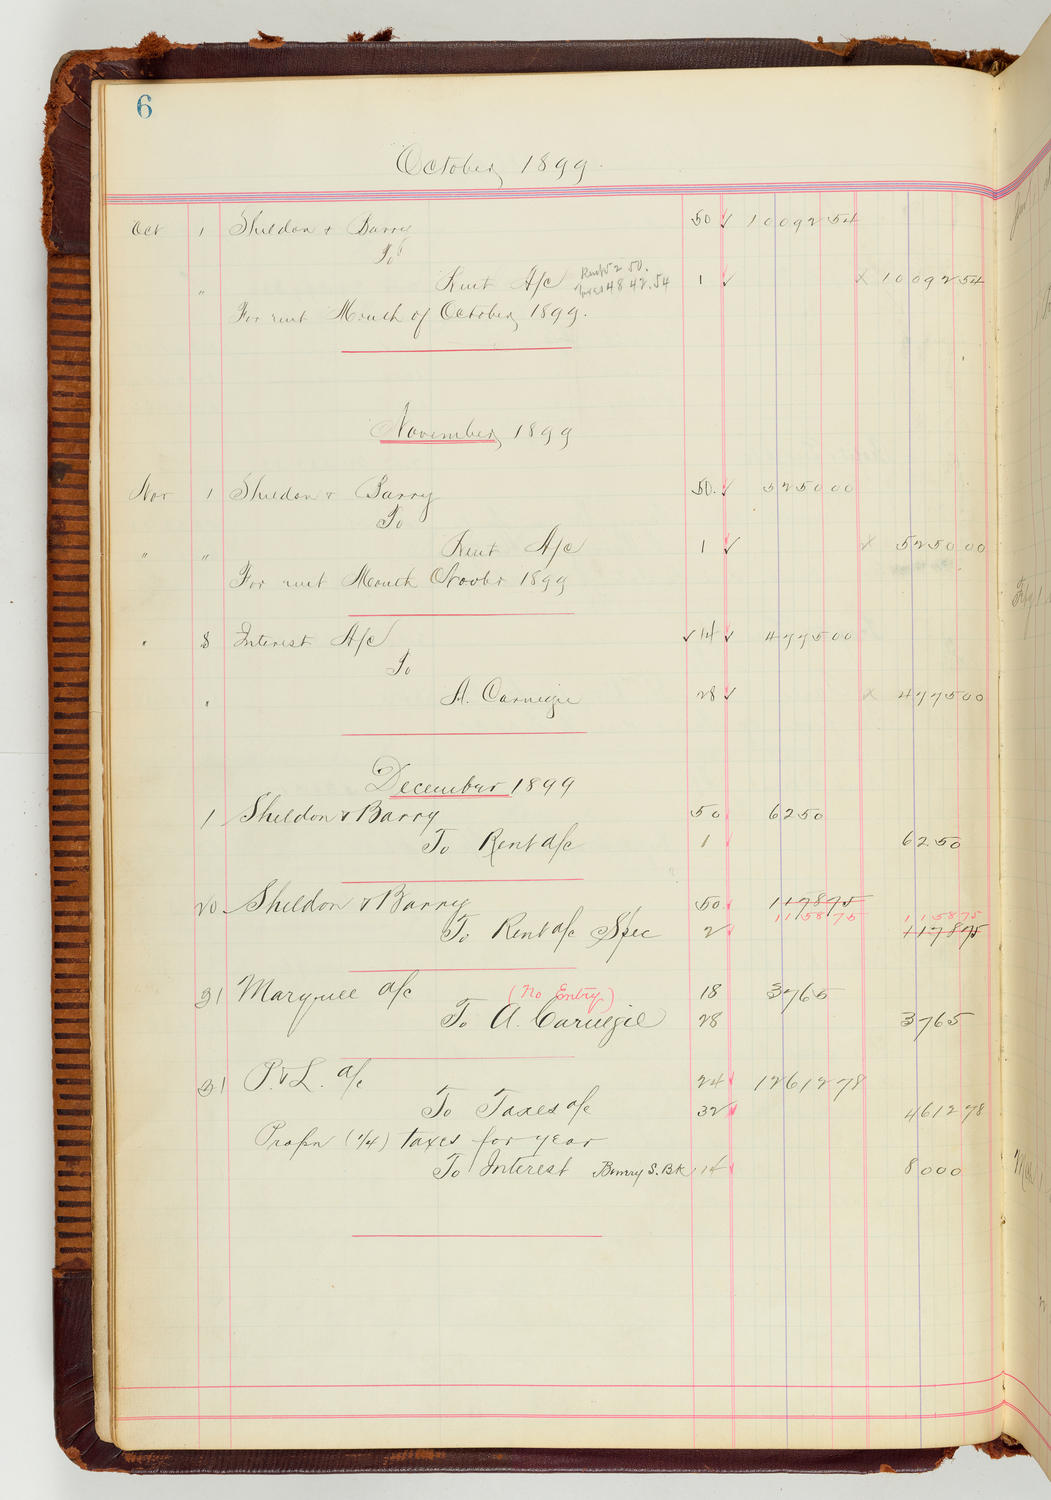 6
October, 1899.
Oct 1 Sheldon & Barry 50 ✓ 10092 54
To
" Rent A/c Rent 5250. 1 ✓ x 10092 54
4842.54
For rent Month of October, 1899.
November, 1899
Nov 1 Sheldon & Barry 50. ✓ 5250 00
To
" " Rent A/c 1 ✓ x 5250 00
For rent Month Novbr 1899
" 8 Interest A/c ✓ 14 ✓ 4775 00
To
" A. Carnegie 28 ✓ x 4775 00
December 1899
1 Sheldon & Barry 50 62 50
To Rent a/c 1 62 50
20 Sheldon & Barry 50 1178 75
1158 75 1158 75
To Rent a/c Spec 2 1178 75
31 Marquee a/c (No Entry) 18 37 65
To A. Carnegie 28 37 65
31 P. & L. a/c 24 12612 78
To Taxes a/c 32 4612 78
Propn (1/4) taxes for year
To Interest Bowry S. Bk 14 8000